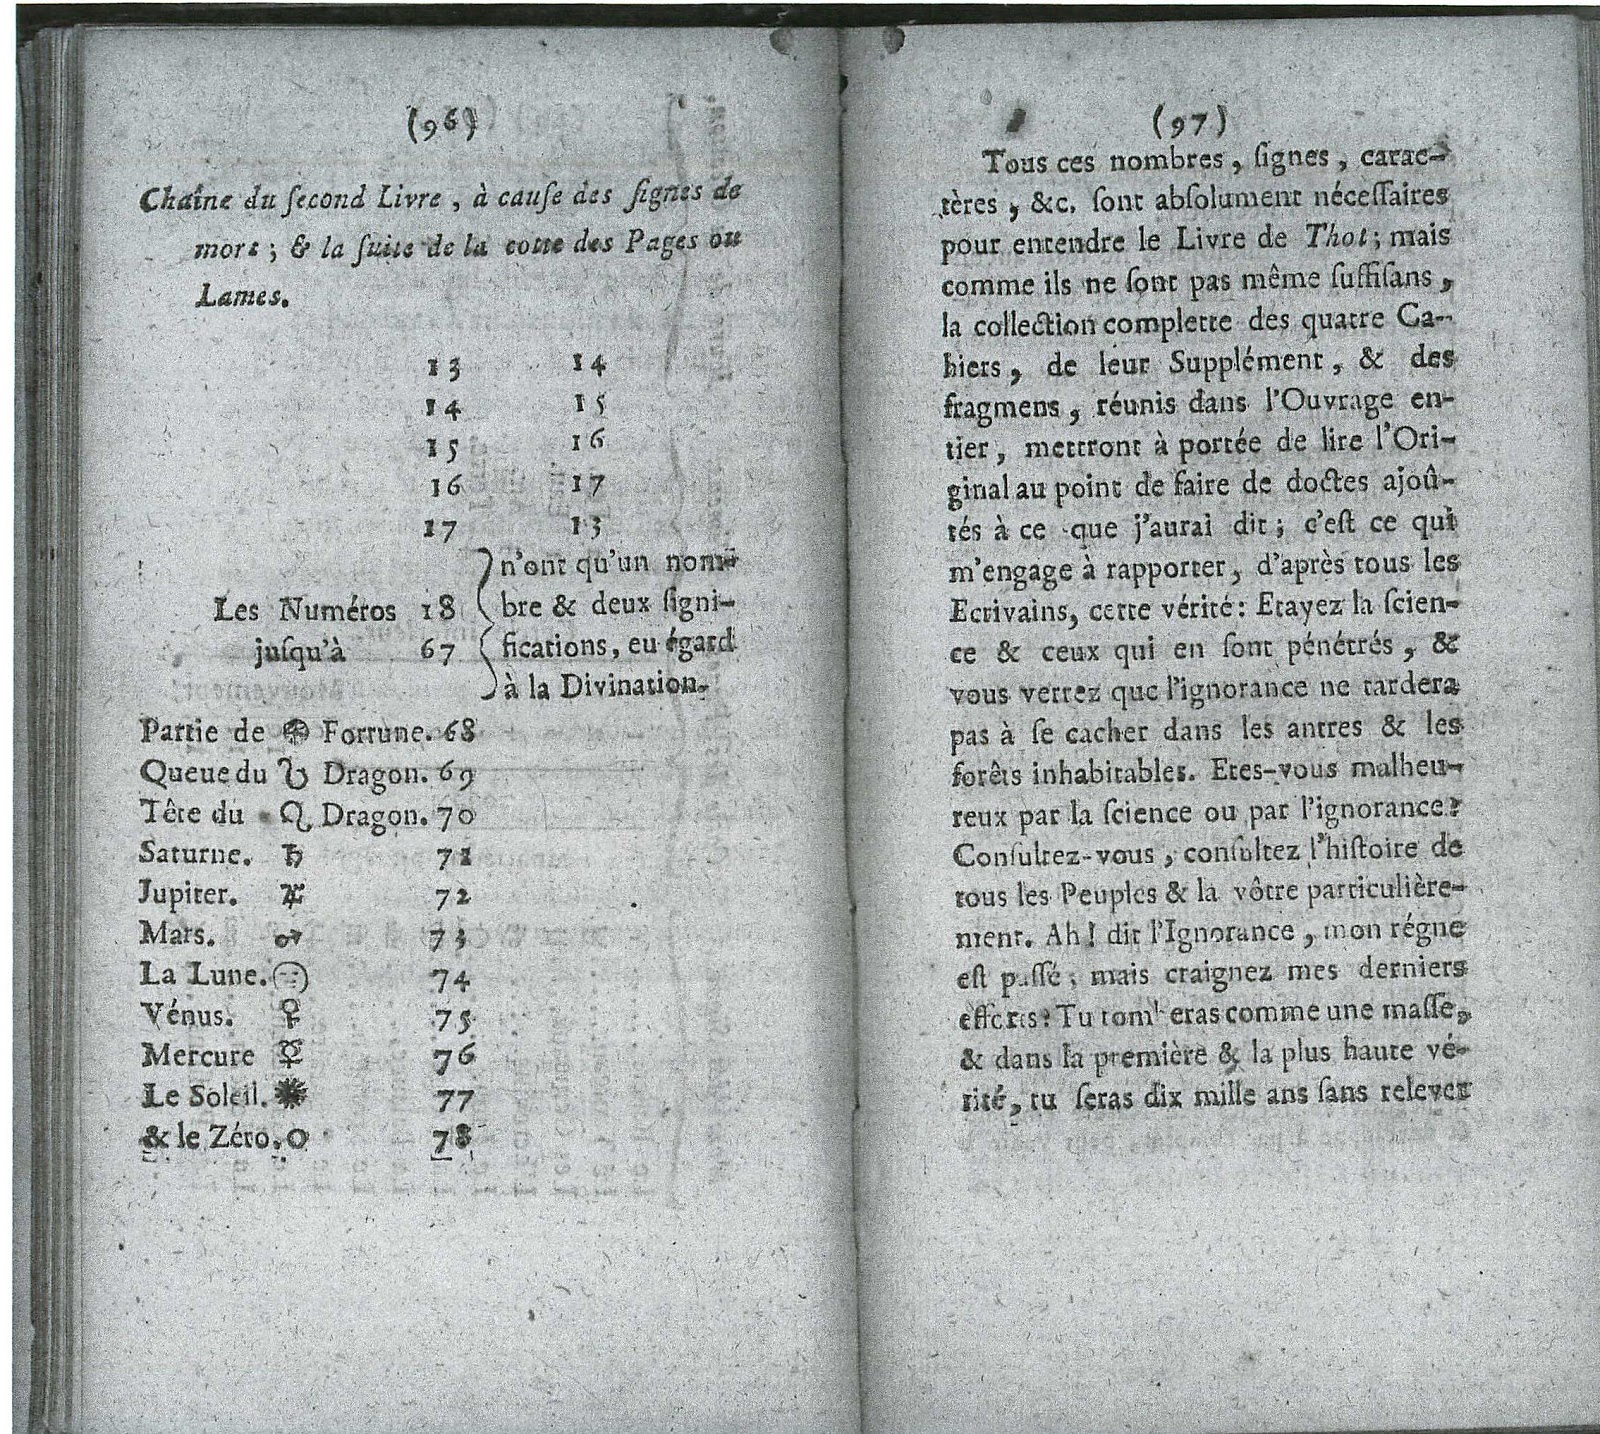 (96)
Chaîne du ſecond Livre, à cauſe des ſignes de
mort ; & la ſuite de la cotte des Pages ou
Lames.
13 14
14 15
15 16
16 17
17 13
Les Numéros 18
juſqu'à 67
n'ont qu'un nom-
bre & deux ſigni-
fications, eu égard
à la Divination.
Partie de Fortune. 68
Queue du ☋ Dragon. 69
Tête du ☊ Dragon. 70
Saturne. ♄ 71
Jupiter. ♃ 72
Mars. ♂ 73
La Lune. 74
Vénus. ♀ 75
Mercure ☿ 76
Le Soleil. 77
& le Zéro. 0 78
(97)
Tous ces nombres, ſignes, carac-
tères, &c. ſont abſolument néceſſaires
pour entendre le Livre de Thot ; mais
comme ils ne ſont pas même ſuffiſans,
la collection complette des quatre Ca-
hiers, de leur Supplément, & des
fragmens, réunis dans l'Ouvrage en-
tier, mettront à portée de lire l'Ori-
ginal au point de faire de doctes ajoû-
tés à ce que j'aurai dit ; c'eſt ce qui
m'engage à rapporter, d'après tous les
Ecrivains, cette vérité : Etayez la ſcien-
ce & ceux qui en ſont pénétrés, &
vous verrez que l'ignorance ne tardera
pas à ſe cacher dans les antres & les
forêts inhabitables. Etes-vous malheu-
reux par la ſcience ou par l'ignorance?
Conſultez-vous, conſultez l'hiſtoire de
tous les Peuples & la vôtre particulière-
ment. Ah ! dit l'Ignorance, mon régne
eſt paſſé ; mais craignez mes derniers
efforts : Tu tomberas comme une maſſe,
& dans la première & la plus haute vé-
rité, tu ſeras dix mille ans ſans relever